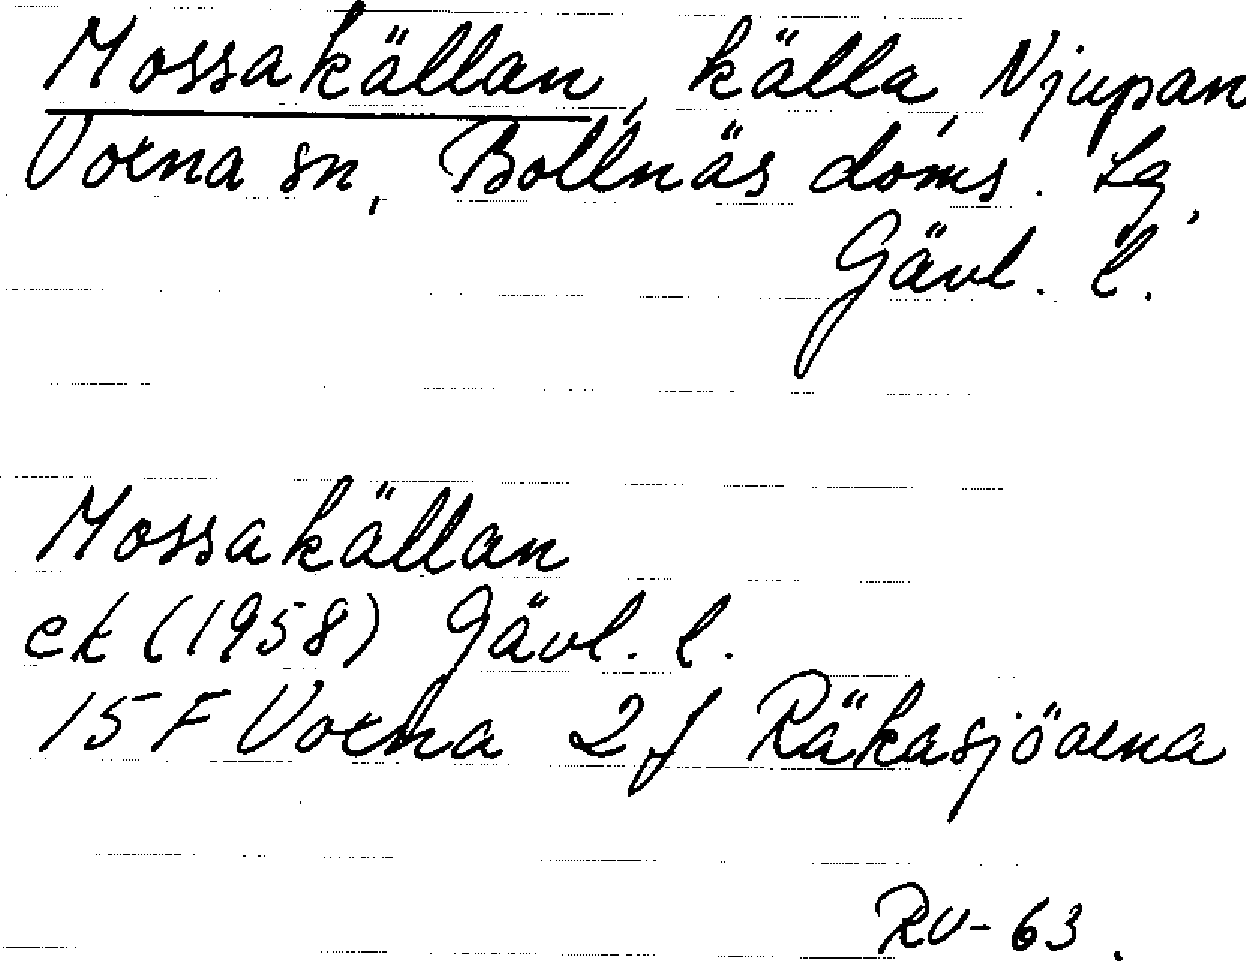 Mossakällan, källa, Njupan
Voxna sn, Bollnäs doms. Lg,
Gävl. l.
Mossakällan
ek (1958) Gävl. l.
15 F Voxna 2 f Räkasjöarna
RV-63.